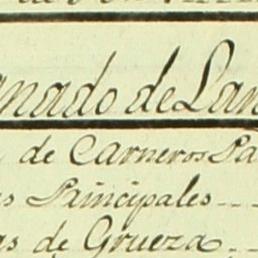 anado de Lan
de Carneros Pa
s Principales
as de Grueza